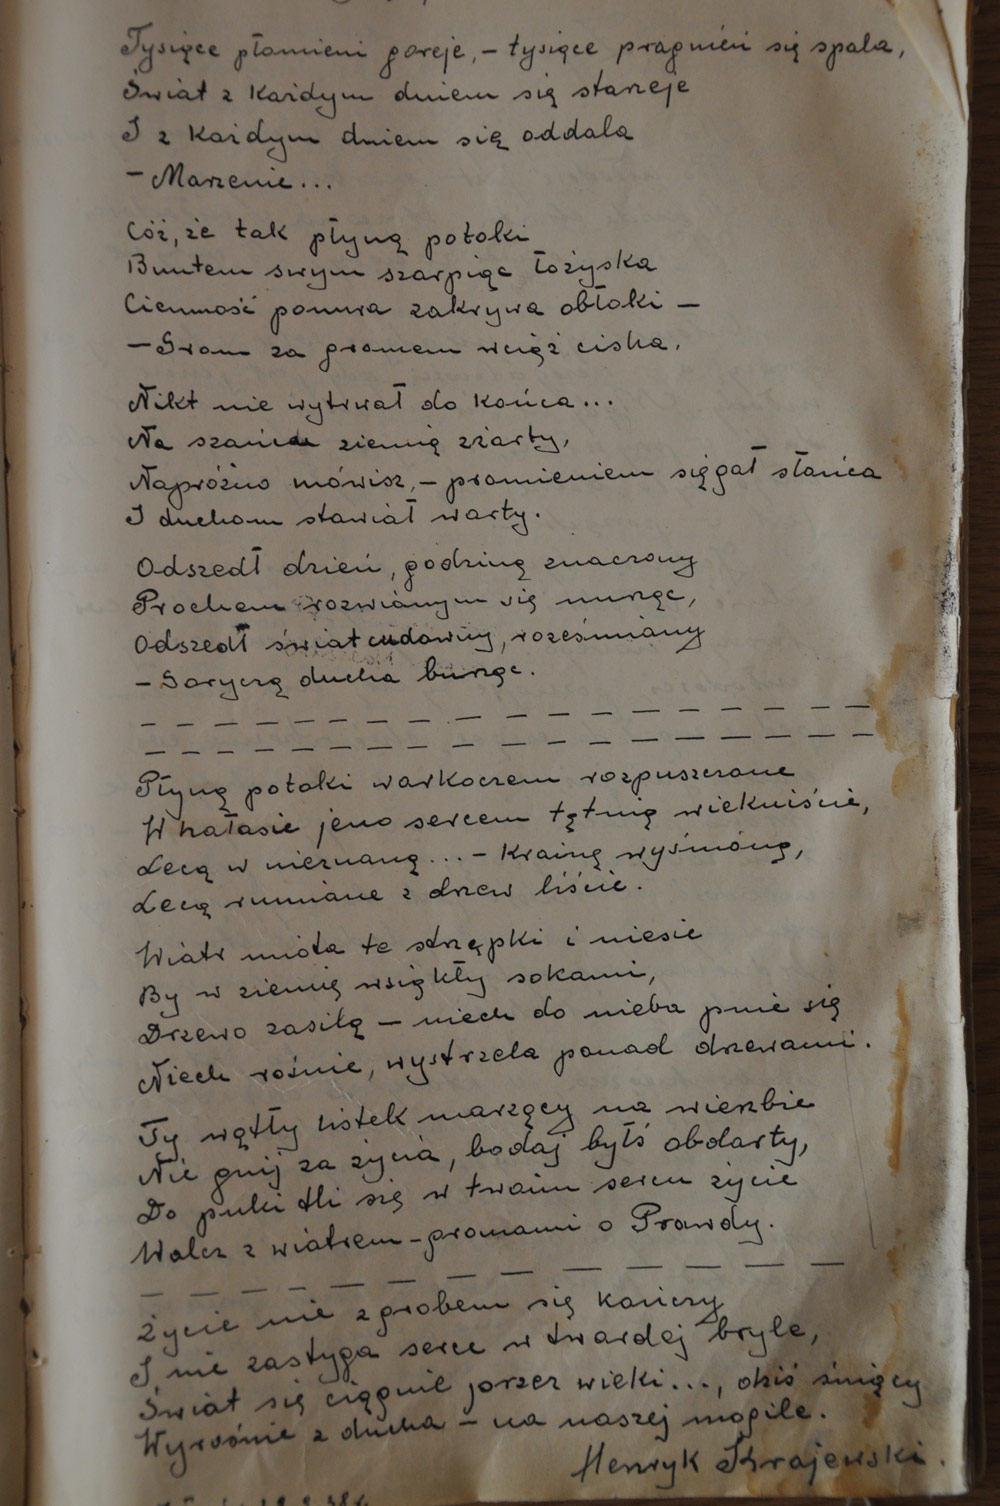 Tysiące płomieni goreje, – tysiące pragnień się spala,
Świat z każdym dniem się starzeje
I z każdym dniem się oddala
– Marzenie...
Cóż, że tak płyną potoki
Buntem swym szarpiąc łożyska
Ciemność ponura zakrywa obłoki –
– Grom za gromem wciąż ciska.
Nikt nie wytrwał do końca...
Na szańcu ziemią zżarty,
Napróżno mówisz, – promieniem sięgał słońca
I duchom stawiał warty.
Odszedł dzień, godziną znaczony
Prochem rozwianym się nurząc,
Odszedł świat cudowny, roześmiany
– Goryczą ducha burząc.
Płyną potoki warkoczem rozpuszczone
W hałasie jeno sercem tętnią wiekuiście,
Lecą w nieznaną... – Krainę wyśnioną,
Lecą rumiane z drzew liście.
Wiatr miota te strzępki i niesie
By w ziemię wsiąkły sokami,
Drzewo zasilą – niech do nieba pnie się
Niech rośnie, wystrzela ponad drzewami.
Ty wątły listek marzący na wierzbie
Nie gnij za życia, bodaj byłś obdarty,
Do puki tli się w twoim sercu życie
Walcz z wiatrem – gromami o Prawdy.
Życie nie z grobem się kończy
I nie zastyga serce w twardej bryle,
Świat się ciągnie przez wieki..., dziś śniący
Wyrośnie z ducha – na naszej mogile.
Henryk Krajewski.